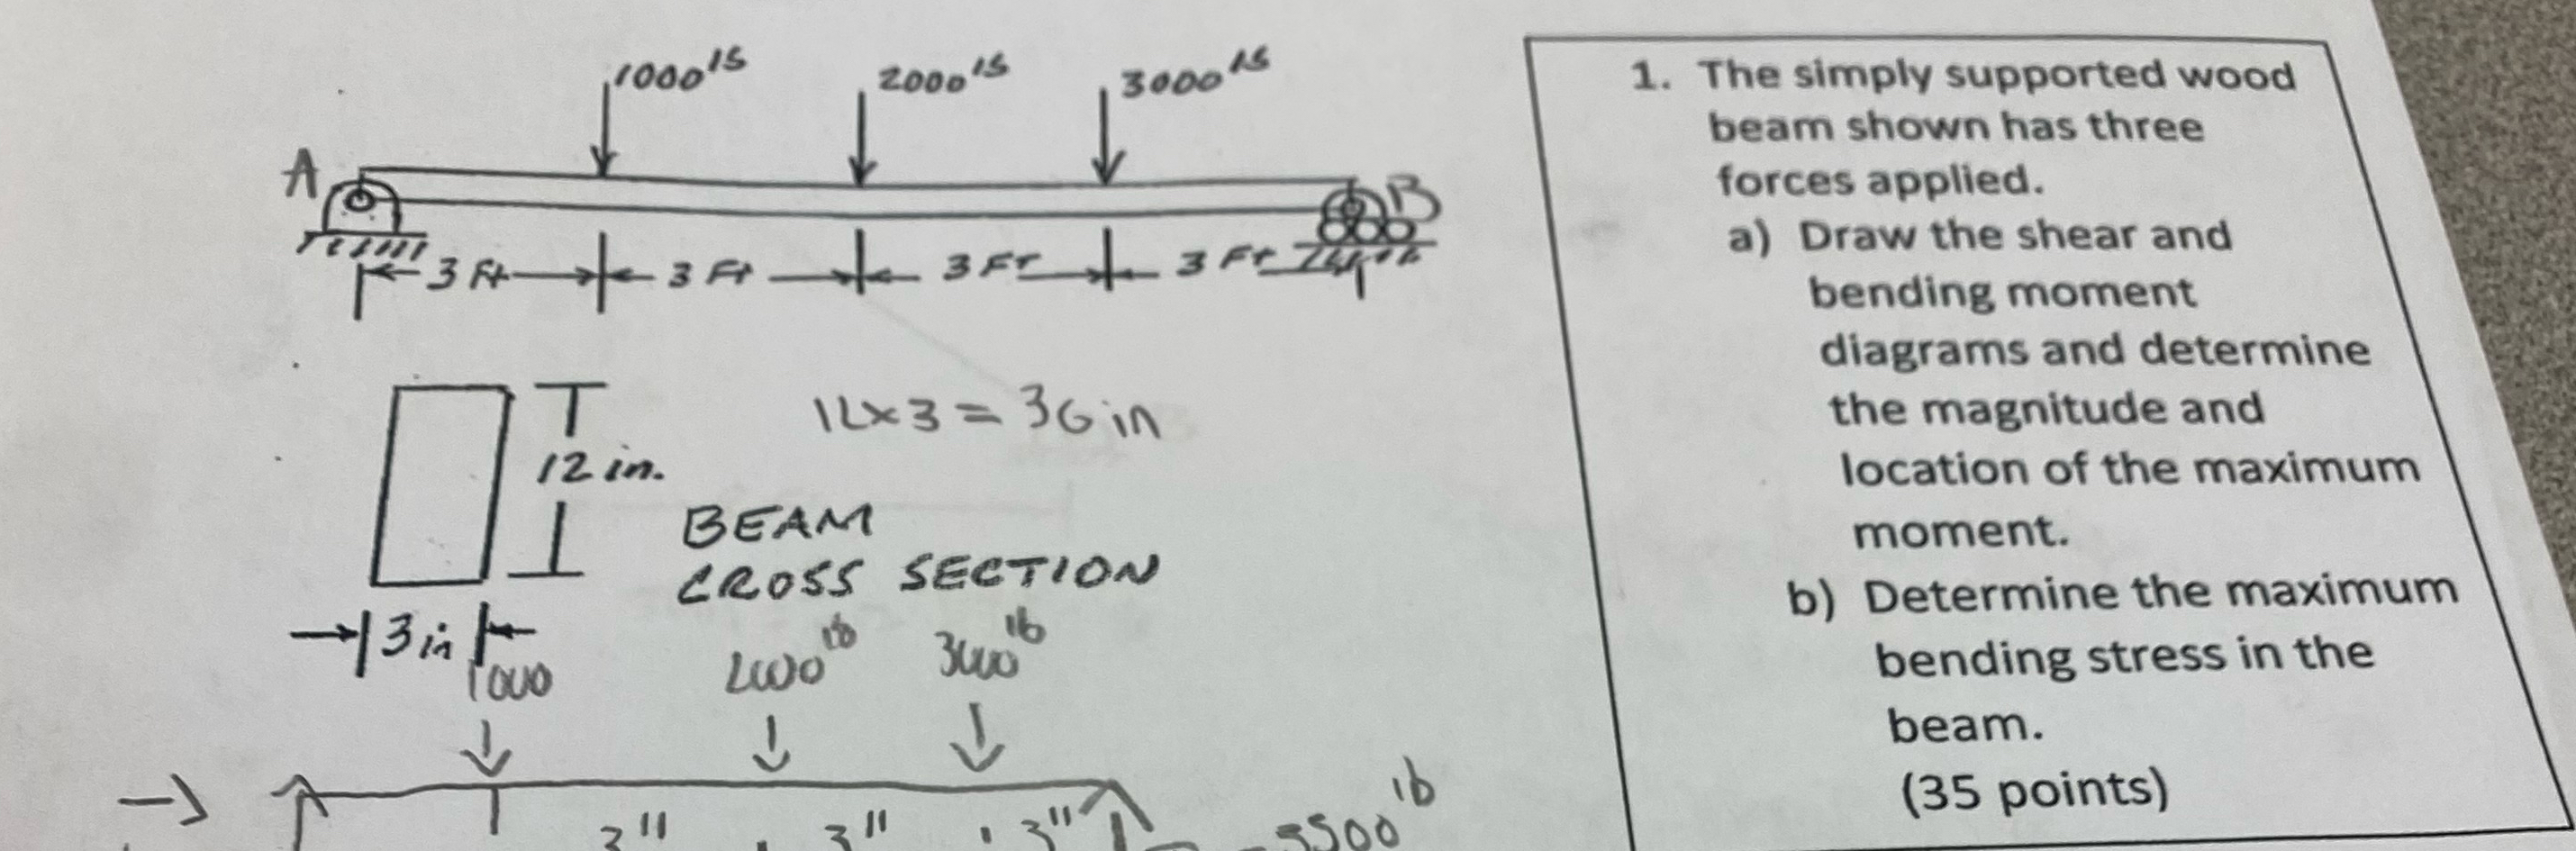 1000 lb
2000 lb
3000 lb
A
B
3 ft
3 Ft
3 Ft
3 Ft
12 x 3 = 36 in
12 in.
BEAM
CROSS SECTION
3 in
1000
2000 lb
3000 lb
3"
3"
3"
3500 lb
1. The simply supported wood
beam shown has three
forces applied.
a) Draw the shear and
bending moment
diagrams and determine
the magnitude and
location of the maximum
moment.
b) Determine the maximum
bending stress in the
beam.
(35 points)